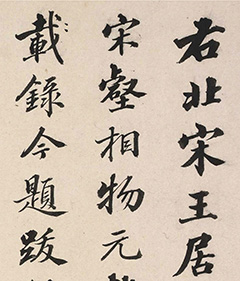 右北宋王居
宋壑相物元
載錄今題跋